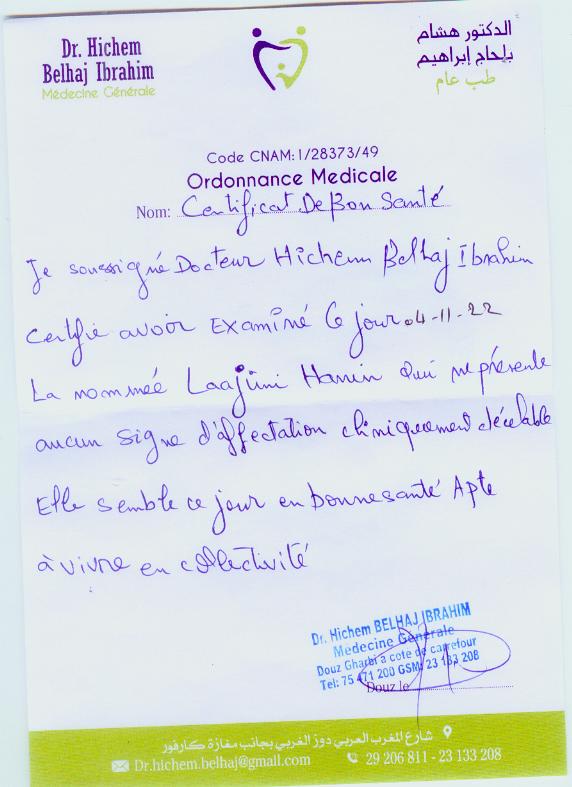 Dr. Hichem
Belhaj Ibrahim
Médecine Générale
الدكتور هشام
بلحاج إبراهيم
طب عام
Code CNAM: 1/28373/49
Ordonnance Medicale
Nom: Certificat De Bon Santé
Je soussigné Docteur Hichem Belhaj Ibrahim
Certifie avoir Examiné Ce jour 04-11-22
La nommée Laajimi Hanin qui ne présente
aucun signe d'affectation cliniquement décelable
Elle semble ce jour en bonne santé Apte
à vivre en collectivité
Dr. Hichem BELHAJ IBRAHIM
Medecine Generale
Douz Gharbi à coté de carrefour
Tel: 75 471 200 GSM: 23 133 208
Douz le
شارع المغرب العربي دوز الغربي بجانب مغازة كارفور
Dr.hichem.belhaj@gmail.com
29 206 811 - 23 133 208